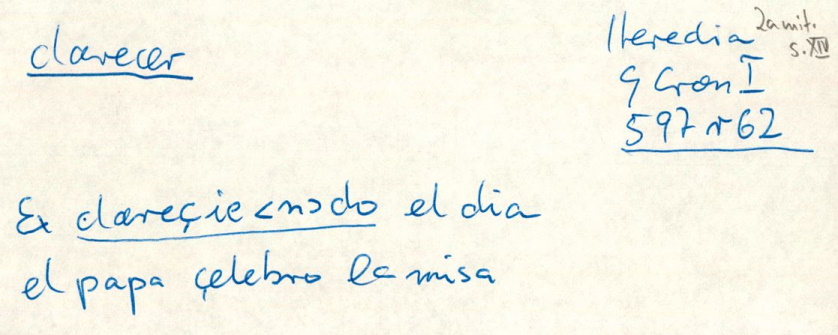 clarecer
Heredia 2a mit.
s. XIV
G Cron I
597 r 62
Ex clareçie<n>do el dia
el papa çelebro la misa